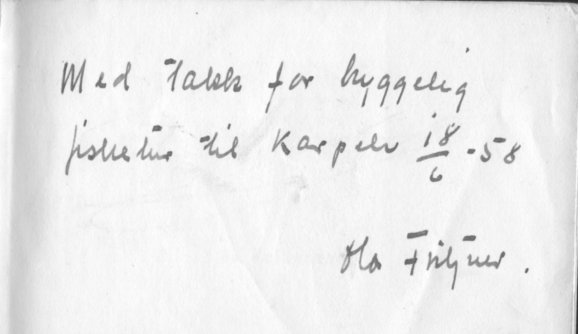 Med takk for hyggelig
fisketur til Karpelv 18/6 -58
Ola